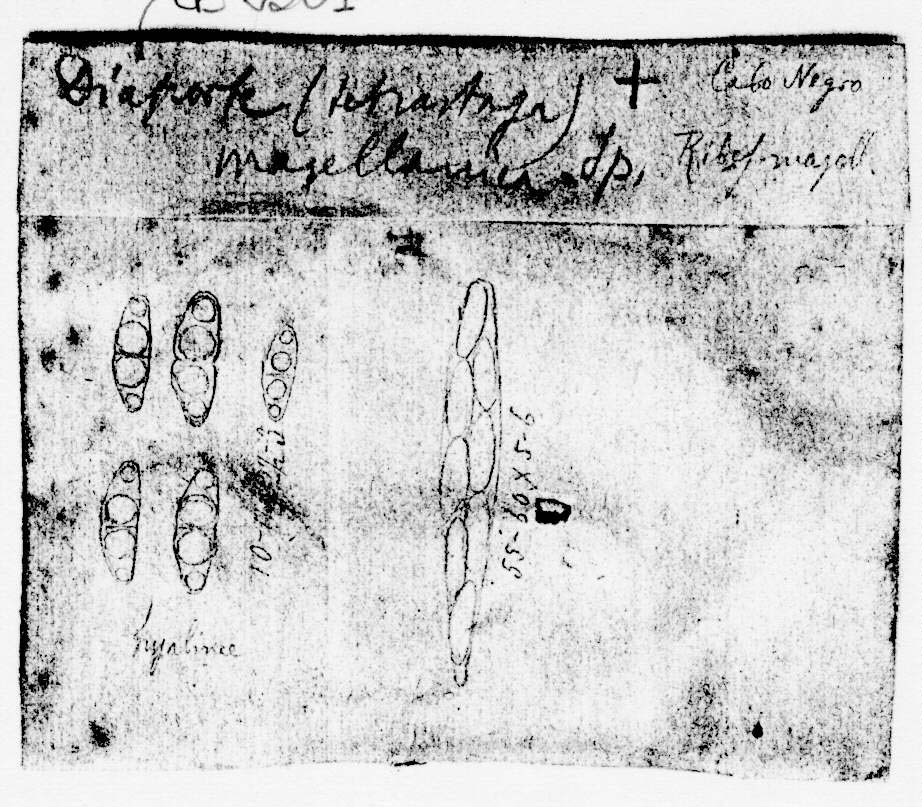 Diaporte (tetrastaga) + Cabo Negro
magellanica Sp. Ribes magell.
55-60 X 5-6
hyalinae